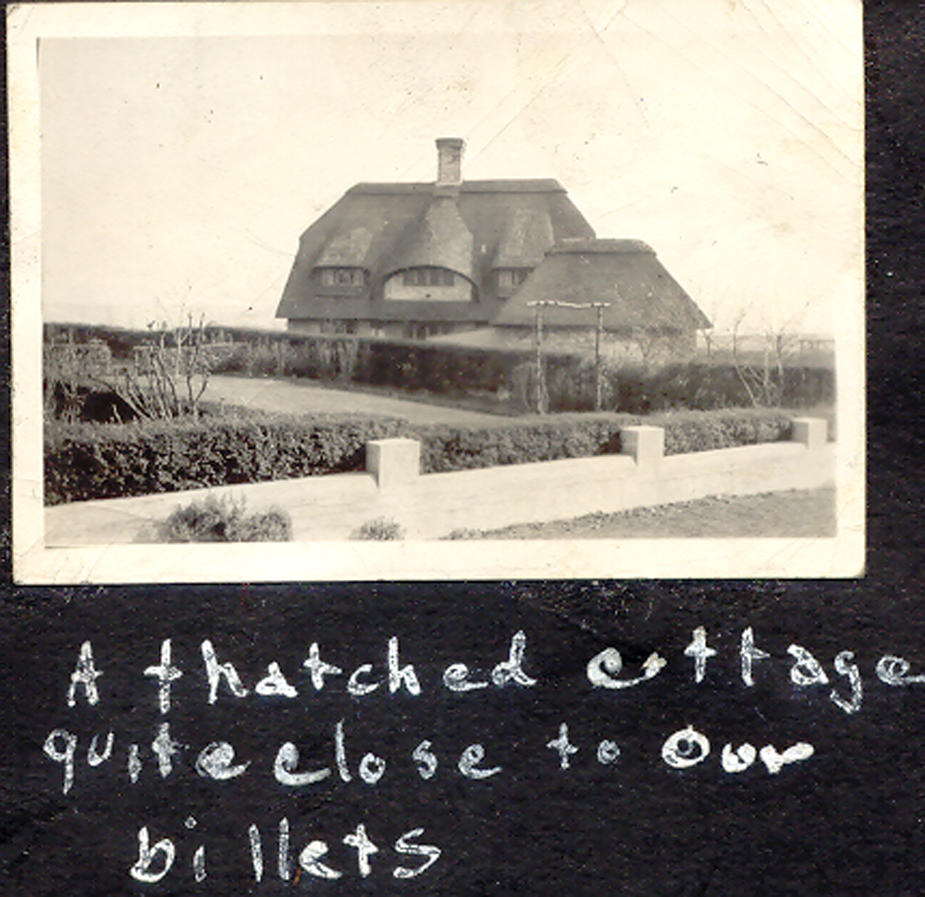 A thatched cottage
quite close to our
billets